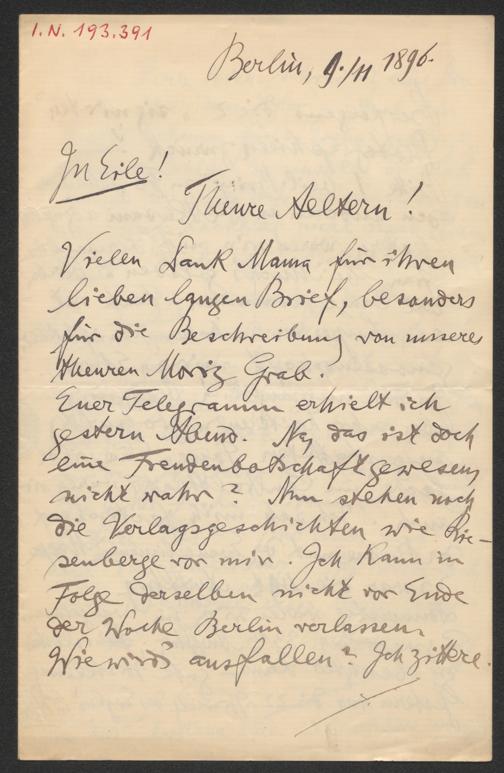 I.N. 193.391
Berlin, 9./11 1896.
In Eile!
Theure Aeltern!
Vielen Dank Mama für ihren
lieben langen Brief, besonders
für die Beschreibung von unseres
theuren Moriz Grab.
Euer Telegramm erhielt ich
gestern Abend. Na, das ist doch
eine Freudenbotschaft gewesen,
nicht wahr? Nun stehen noch
die Verlagsgeschichten wie Rie-
senberge vor mir. Ich kann in
Folge derselben nicht vor Ende
der Woche Berlin verlassen.
Wie wird's ausfallen? Ich zittere.